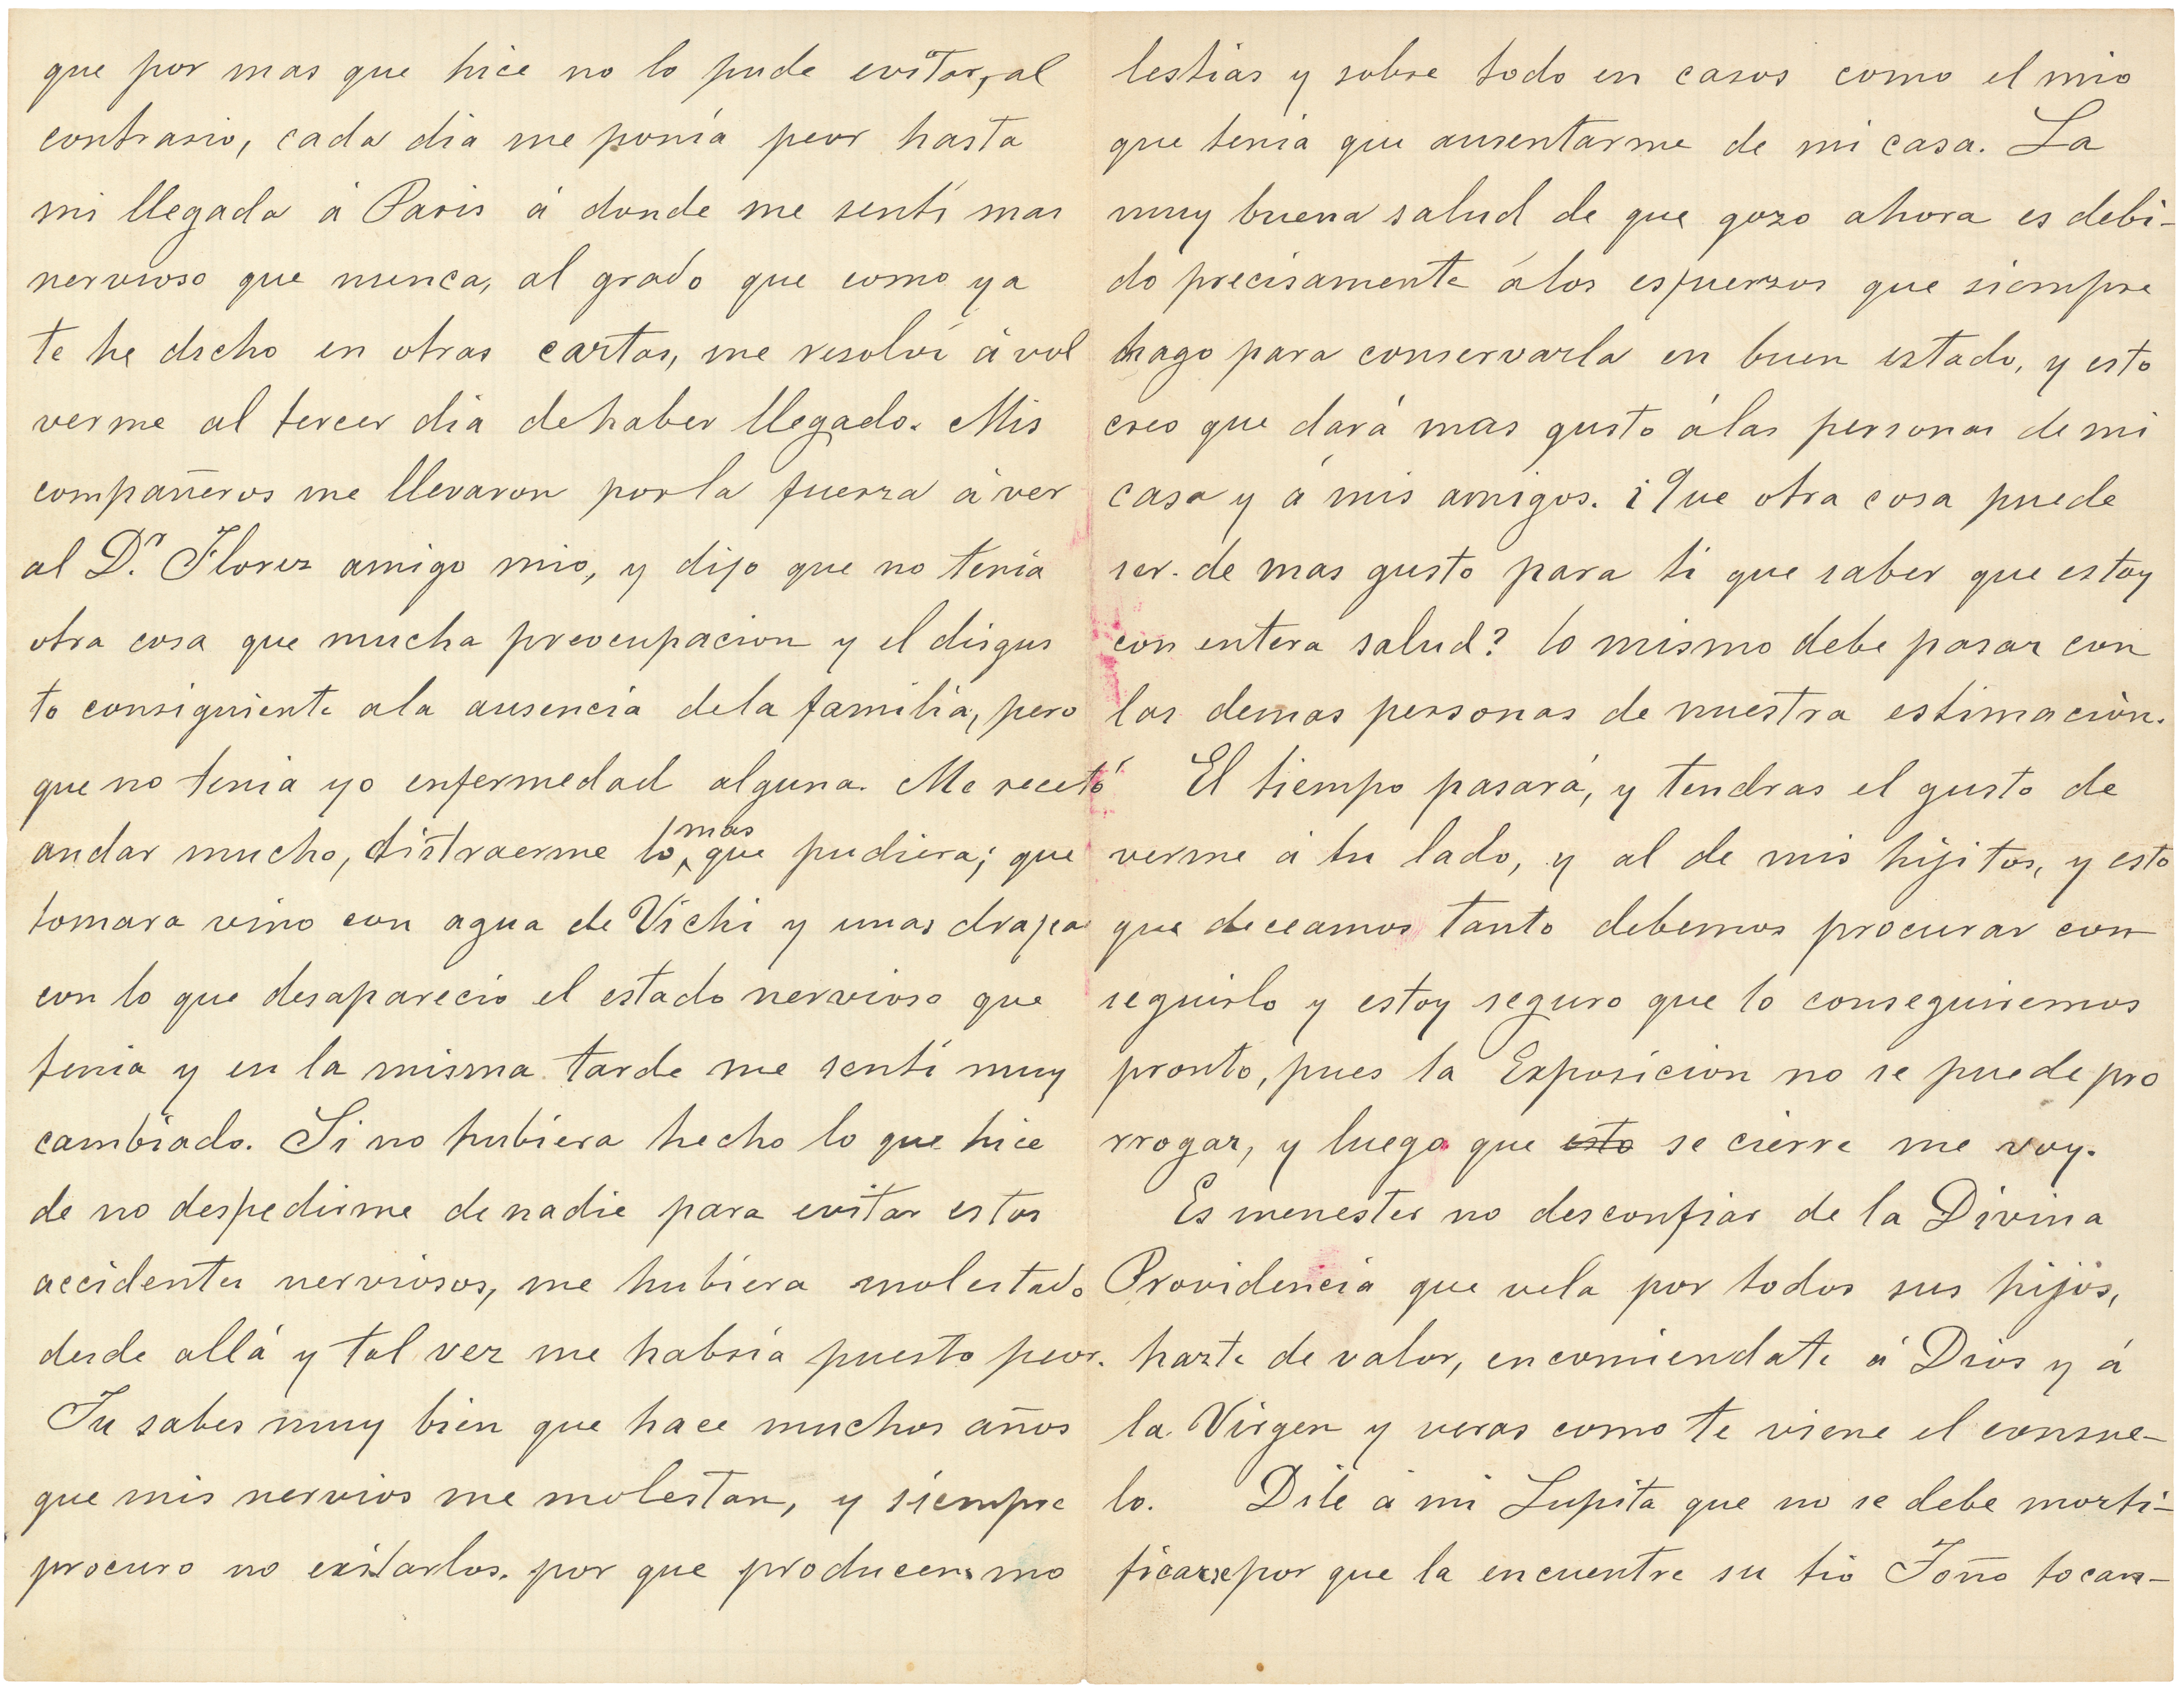 que por mas que hice no lo pude evitar, al
contrario, cada dia me ponía peor hasta
mi llegada á Paris á donde me sentí mas
nervioso que nunca, al grado que como ya
te he dicho en otras cartas, me resolví á vol
verme al tercer dia de haber llegado. Mis
compañeros me llevaron por la fuerza á ver
al D.r Florez amigo mio, y dijo que no tenía
otra cosa que mucha preocupacion y el disgus
to consiguiente a la ausencia de la familia, pero
que no tenia yo enfermedad alguna. Me recetó
andar mucho, distraerme lo mas que pudiera; que
tomara vino con agua de Vichi y unas
con lo que desaparecio el estado nervioso que
tenia y en la misma tarde me sentí muy
cambiado. Si no hubiera hecho lo que hice
de no despedirme de nadie para evitar estos
accidentes nerviosos, me hubiera molestado
desde allá y tal vez me habria puesto peor.
Tu sabes muy bien que hace muchos años
que mis nervios me molestan, y siempre
procuro no exitarlos, por que producen mo
lestias y sobre todo en casos como el mio
que tenia que ausentarme de mi casa. La
muy buena salud de que gozo ahora es debi-
do precisamente á los esfuerzos que siempre
hago para conservarla en buen estado, y esto
creo que dará mas gusto á las personas de mi
casa y á mis amigos. ¿Que otra cosa puede
ser de mas gusto para ti que saber que estoy
con entera salud? lo mismo debe pasar con
las demas personas de nuestra estimación.
El tiempo pasará, y tendras el gusto de
verme á tu lado, y al de mis hijitos, y esto
que deceamos tanto debemos procurar con
seguirlo y estoy seguro que lo conseguiremos
pronto, pues la Exposicion no se puede pro
rrogar, y luego que esto se cierre me voy.
Es menester no desconfiar de la Divina
Providencia que vela por todos sus hijos,
hazte de valor, encomiendate á Dios y á
la Virgen y veras como te viene el consue-
lo. Dile á mi Lupita que no se debe morti-
ficarse por que la encuentre su tio Toño tocan-